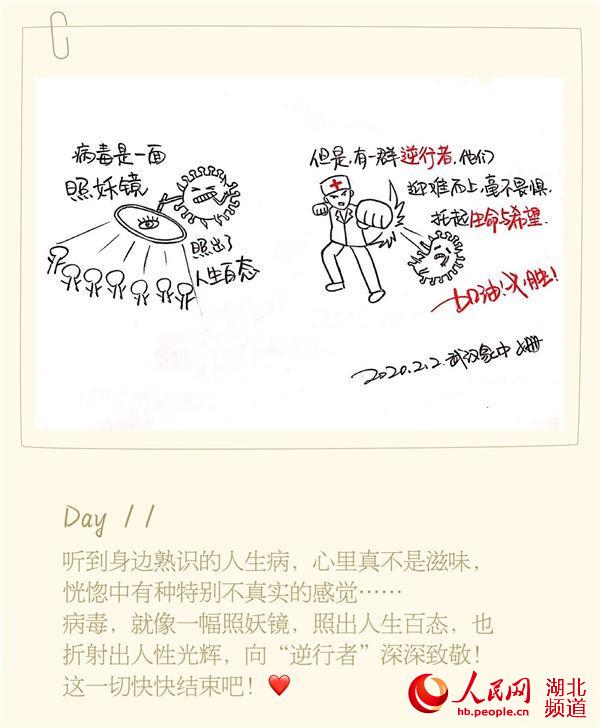 病毒是一面
照妖镜
照出了
人生百态
但是,有一群逆行者,他们
迎难而上,毫不畏惧.
托起生命与希望.
加油!必胜!
2020.2.2.武汉家中
Day 11
听到身边熟识的人生病，心里真不是滋味，
恍惚中有种特别不真实的感觉……
病毒，就像一幅照妖镜，照出人生百态，也
折射出人性光辉，向“逆行者”深深致敬！
这一切快快结束吧！❤️
人民网 湖北
hb.people.cn 频道